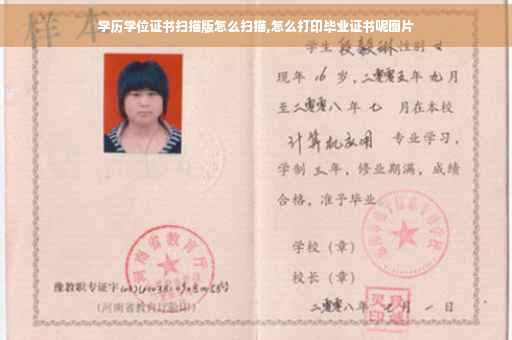 样本
学历学位证书扫描版怎么扫描,怎么打印毕业证书呢图片
学生 段毅琳 性别 女
现年 16 岁,二零零五年 九月
至二零零八年 七 月在本校
计算机应用 专业学习,
学制 三年,修业期满,成绩
合格,准予毕业
学校(章)
校长(章)
二零零八年 七 月 一 日
河南省教育厅
豫教职专证字
(河南省教育厅验印)